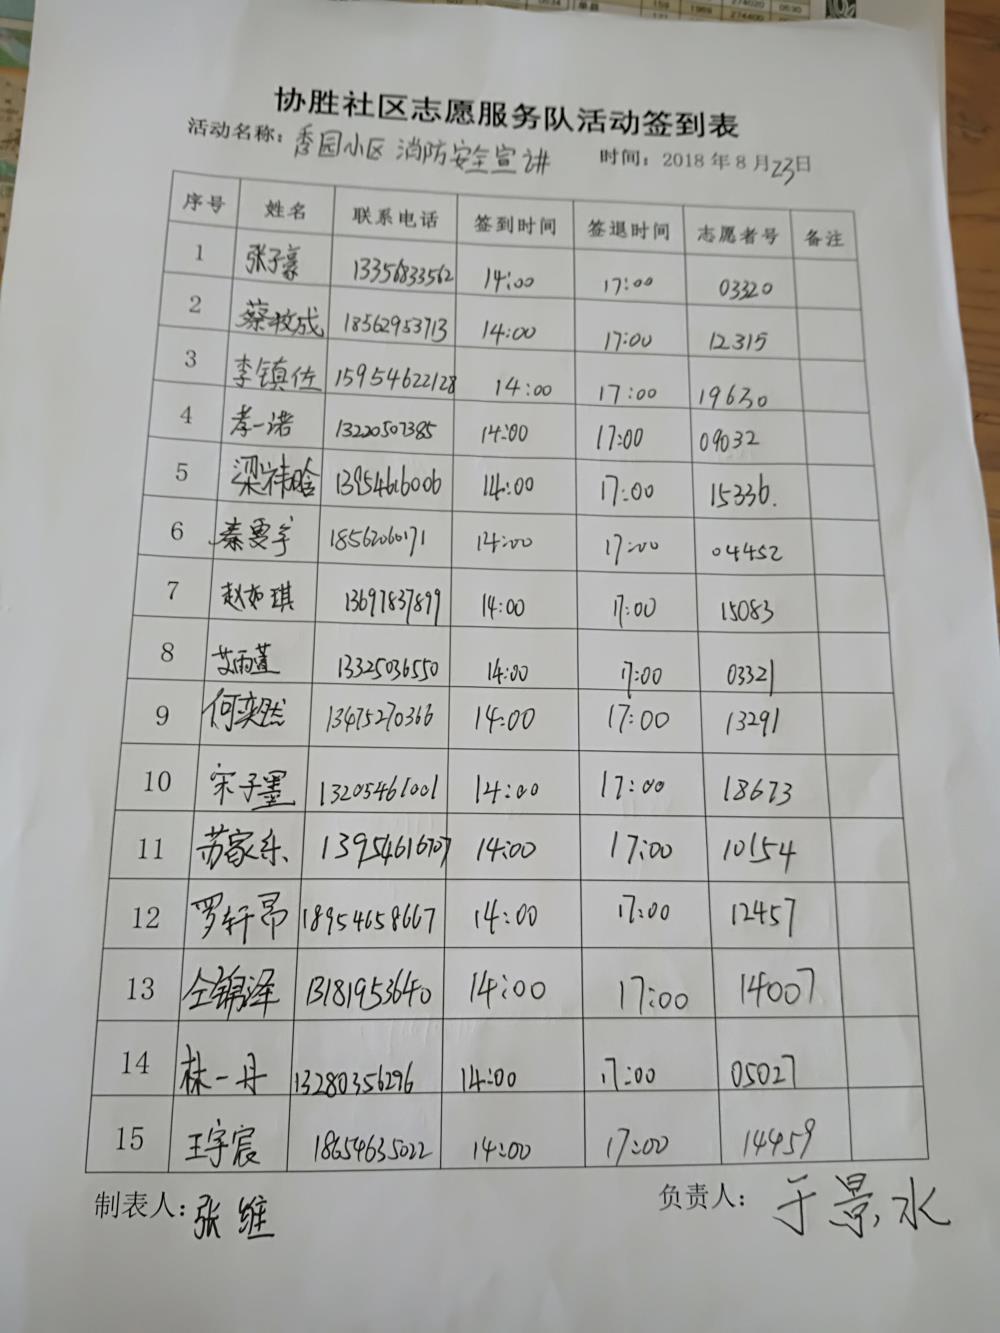 协胜社区志愿服务队活动签到表
活动名称：秀园小区 消防安全宣讲 时间：2018年8月23日
序号 姓名 联系电话 签到时间 签退时间 志愿者号 备注
1 张子豪 13356833562 14:00 17:00 03320
2 蔡牧成 18562953713 14:00 17:00 12315
3 李镇佐 15954622128 14:00 17:00 19630
4 李一诺 13220507385 14:00 17:00 09032
5 梁祎晗 13954616006 14:00 17:00 15336.
6 秦雯宇 18562060171 14:00 17:00 04452
7 赵如琪 13697837899 14:00 17:00 15083
8 艾雨萱 13325036550 14:00 17:00 03321
9 何奕然 13475270366 14:00 17:00 13291
10 宋子墨 13205461001 14:00 17:00 18673
11 苏家乐 13954616707 14:00 17:00 10154
12 罗轩昂 18954658667 14:00 17:00 12457
13 仝锦泽 13181953640 14:00 17:00 14007
14 林一丹 13280356296 14:00 17:00 05027
15 王宇宸 18654635022 14:00 17:00 14459
制表人：张维 负责人：于景水